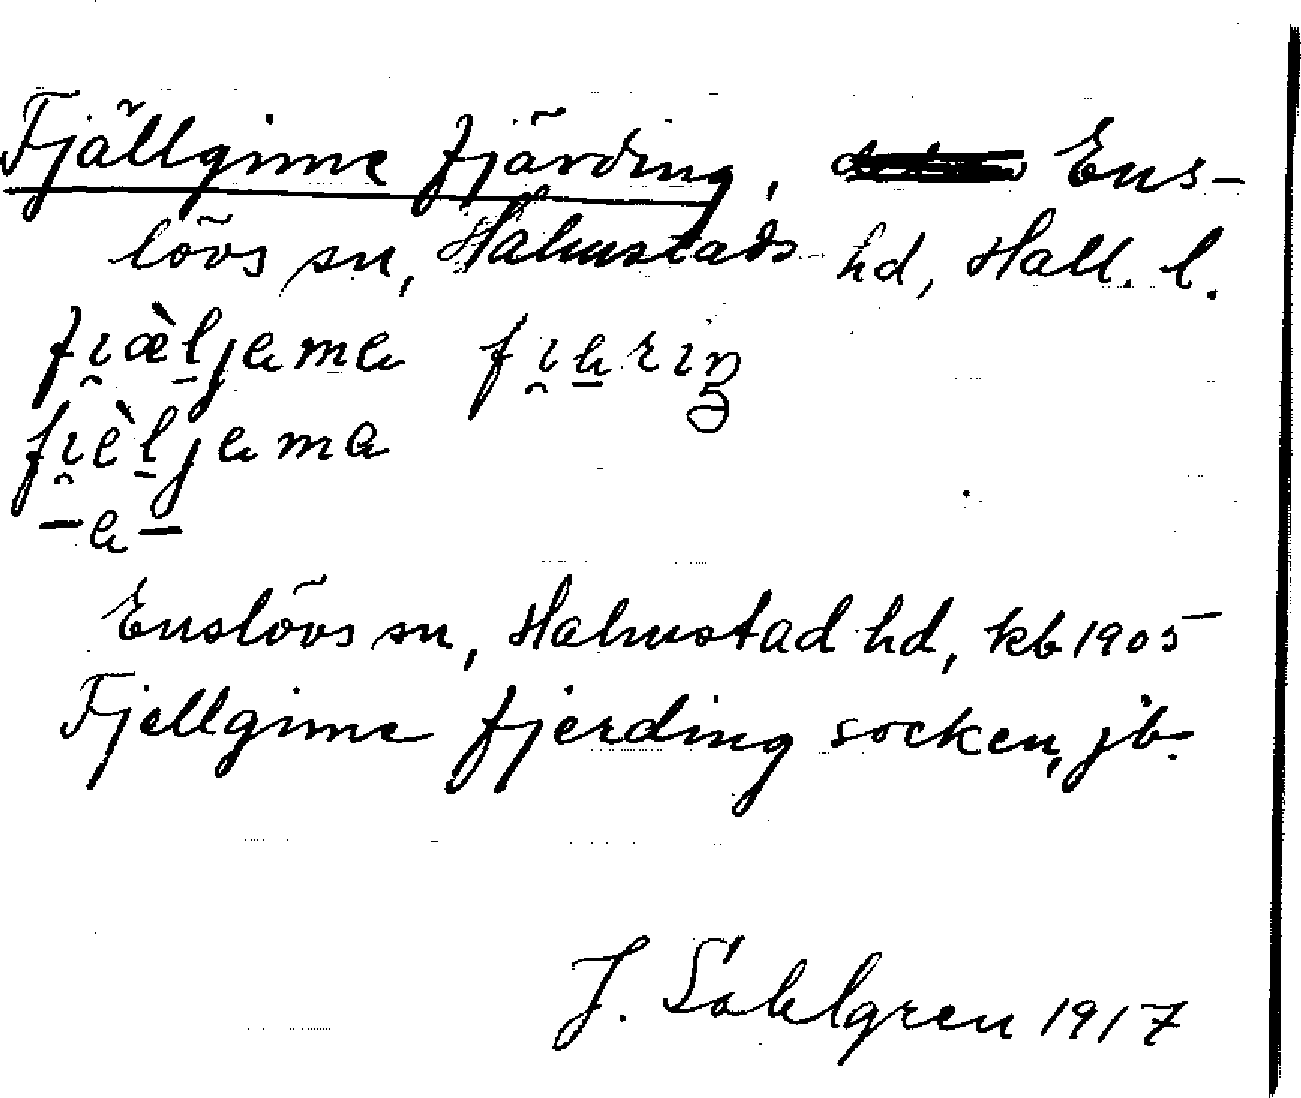 Fjällginne fjärding, Ens-
lövs sn, Halmstads hd, Hall. l.
fı̯æ̀l̠jəmə fı̯ə̠rıŋ
fı̯èl̠jəmə
–ə–
Enslövs sn, Halmstad hd, kb 1905
Fjellginne fjerding socken, jb.
J. Sahlgren 1917